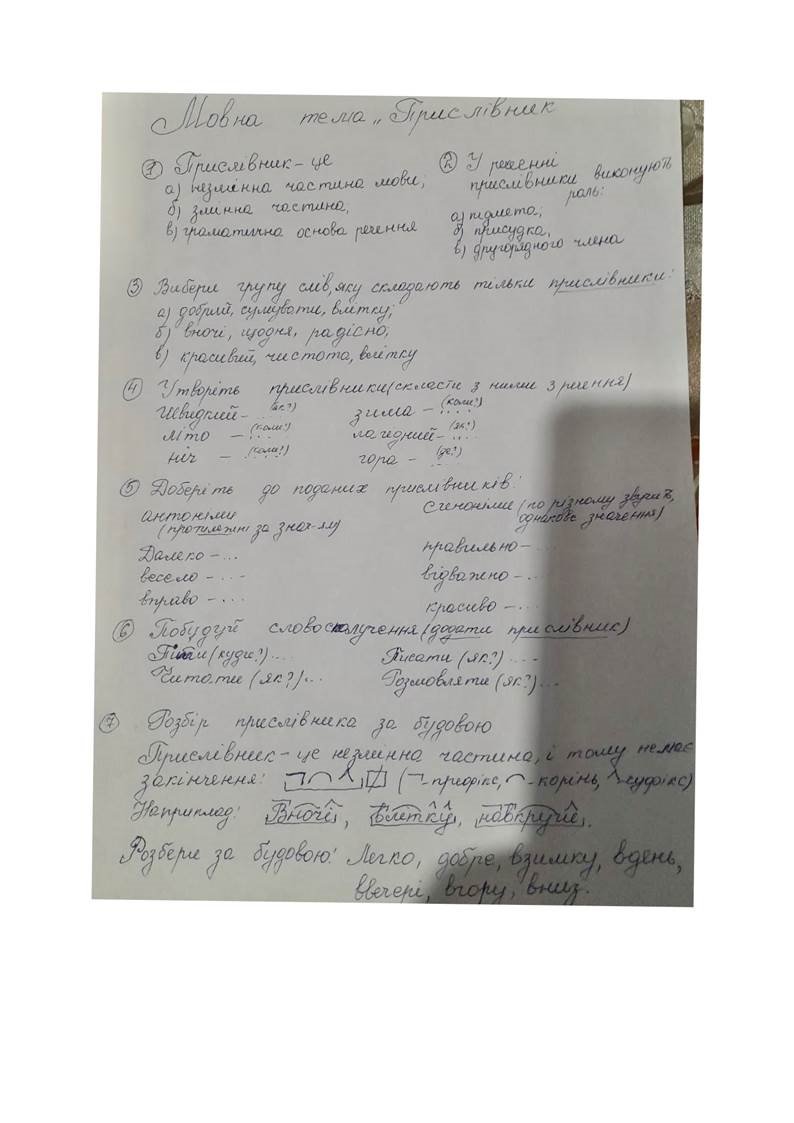 Мовна тема „Прислівник
① Прислівник – це
а) незмінна частина мови;
б) змінна частина,
в) граматична основа речення
② У реченні
прислівники виконують
роль:
а) підмета;
б) присудка,
в) другорядного члена
③ Вибери групу слів, яку складають тільки прислівники:
а) добрий, сумувати, влітку;
б) вночі, щодня, радісно;
в) красивий, чистота, влітку
④ Утворіть прислівники (скласти з ними 3 речення)
Швидкий – (як?) ...
літо – (коли?) ...
ніч – (коли?) ...
зима – (коли?) ....
лагідний – (як?) ....
гора – (де?) ...
⑤ Доберіть до поданих прислівників:
антоніми
(протилежні за знач-ям)
Далеко – ...
весело – ...
вправо – ...
Синоніми (по різному звучить,
однакове значення)
правильно – ...
відважно – ...
красиво – ...
⑥ Побудуй словосполучення (додати прислівник)
Піти (куди?) ....
Читати (як?) ...
Писати (як?) ....
Розмовляти (як?) ...
⑦ Розбір прислівника за будовою
Прислівник – це незмінна частина, і тому немає
закінчення: (¬ - префікс, ⌒ - корінь, ^ - суфікс)
Наприклад: Вночі, влітку, навкруги.
Розбери за будовою: Легко, добре, взимку, вдень,
ввечері, вгору, вниз.